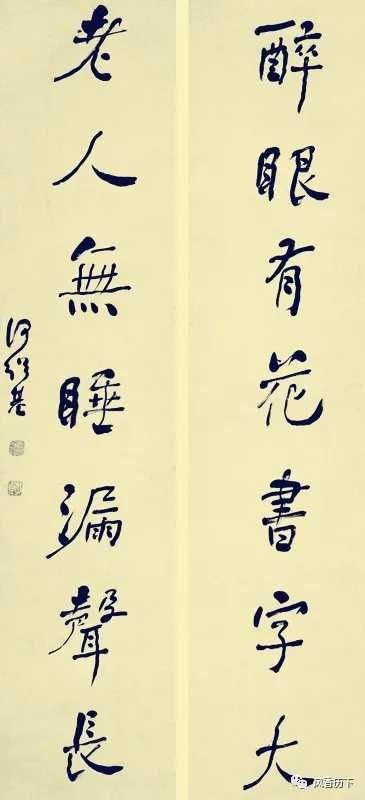 醉眼有花書字大
老人無睡漏聲長
何紹基
风香历下